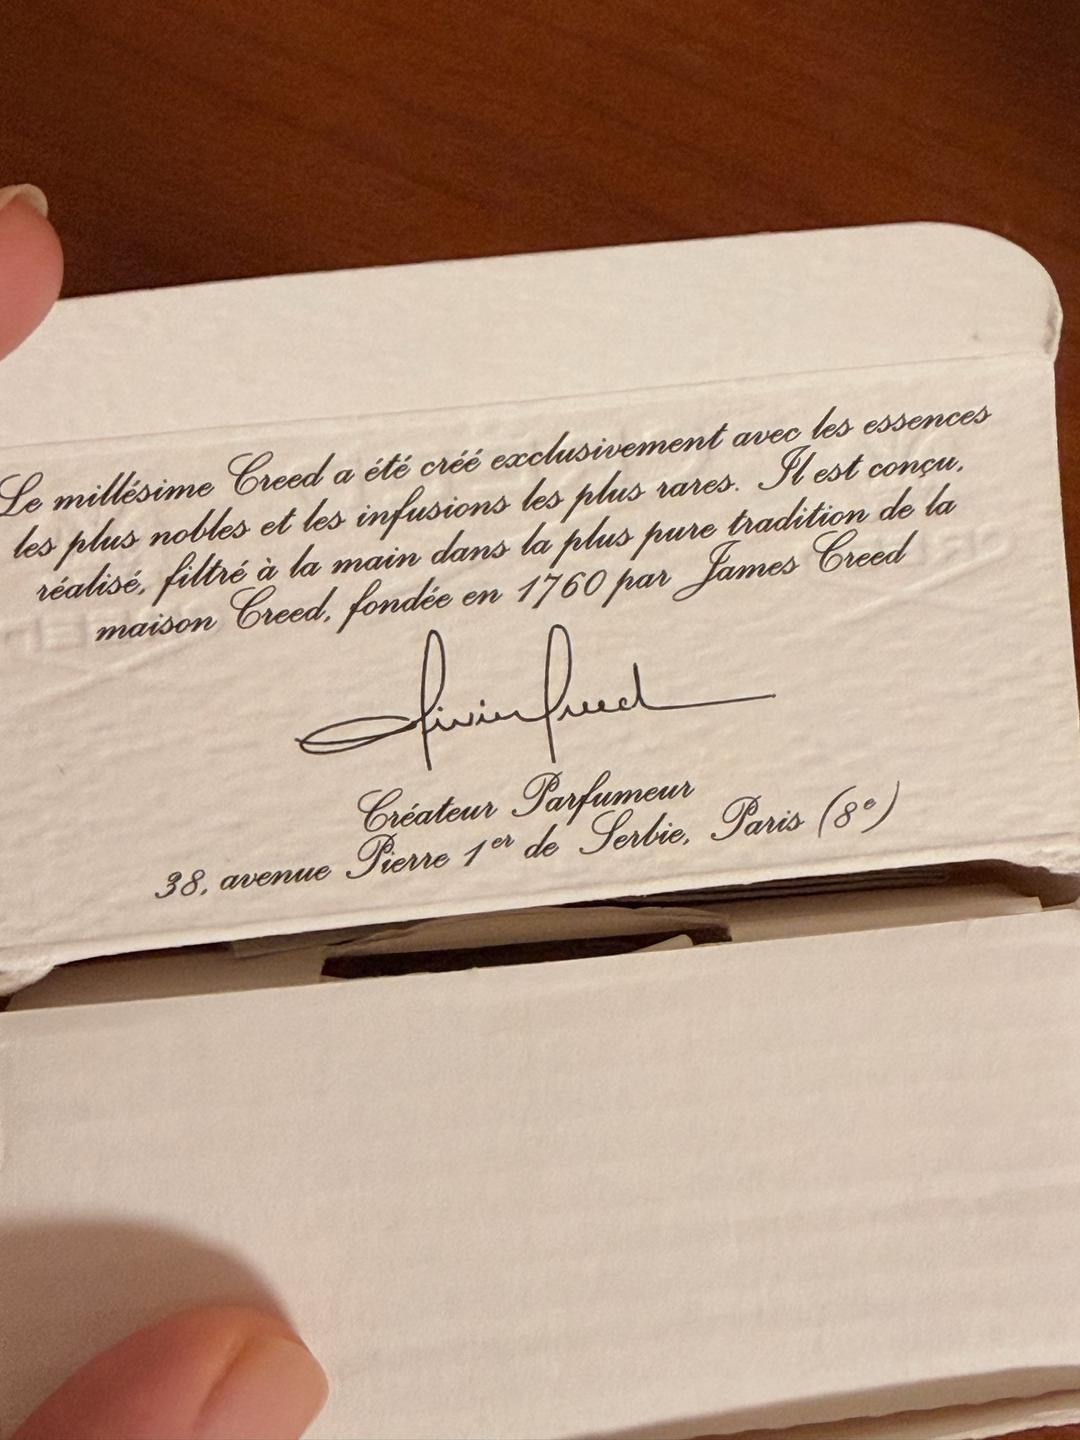 Le millésime Creed a été créé exclusivement avec les essences
les plus nobles et les infusions les plus rares. Il est conçu,
réalisé, filtré à la main dans la plus pure tradition de la
maison Creed, fondée en 1760 par James Creed
Olivier Creed
Créateur Parfumeur
38, avenue Pierre 1er de Serbie, Paris (8e)